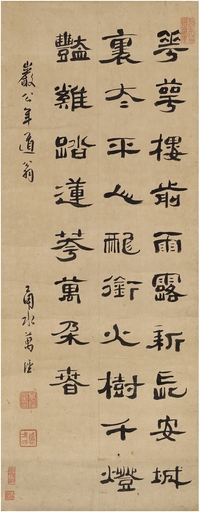 華萼樓前雨露新長安城
裏太平人龍銜火樹千燈
豔雞踏蓮華萬朵春
嚴公年道翁
甬水萬經